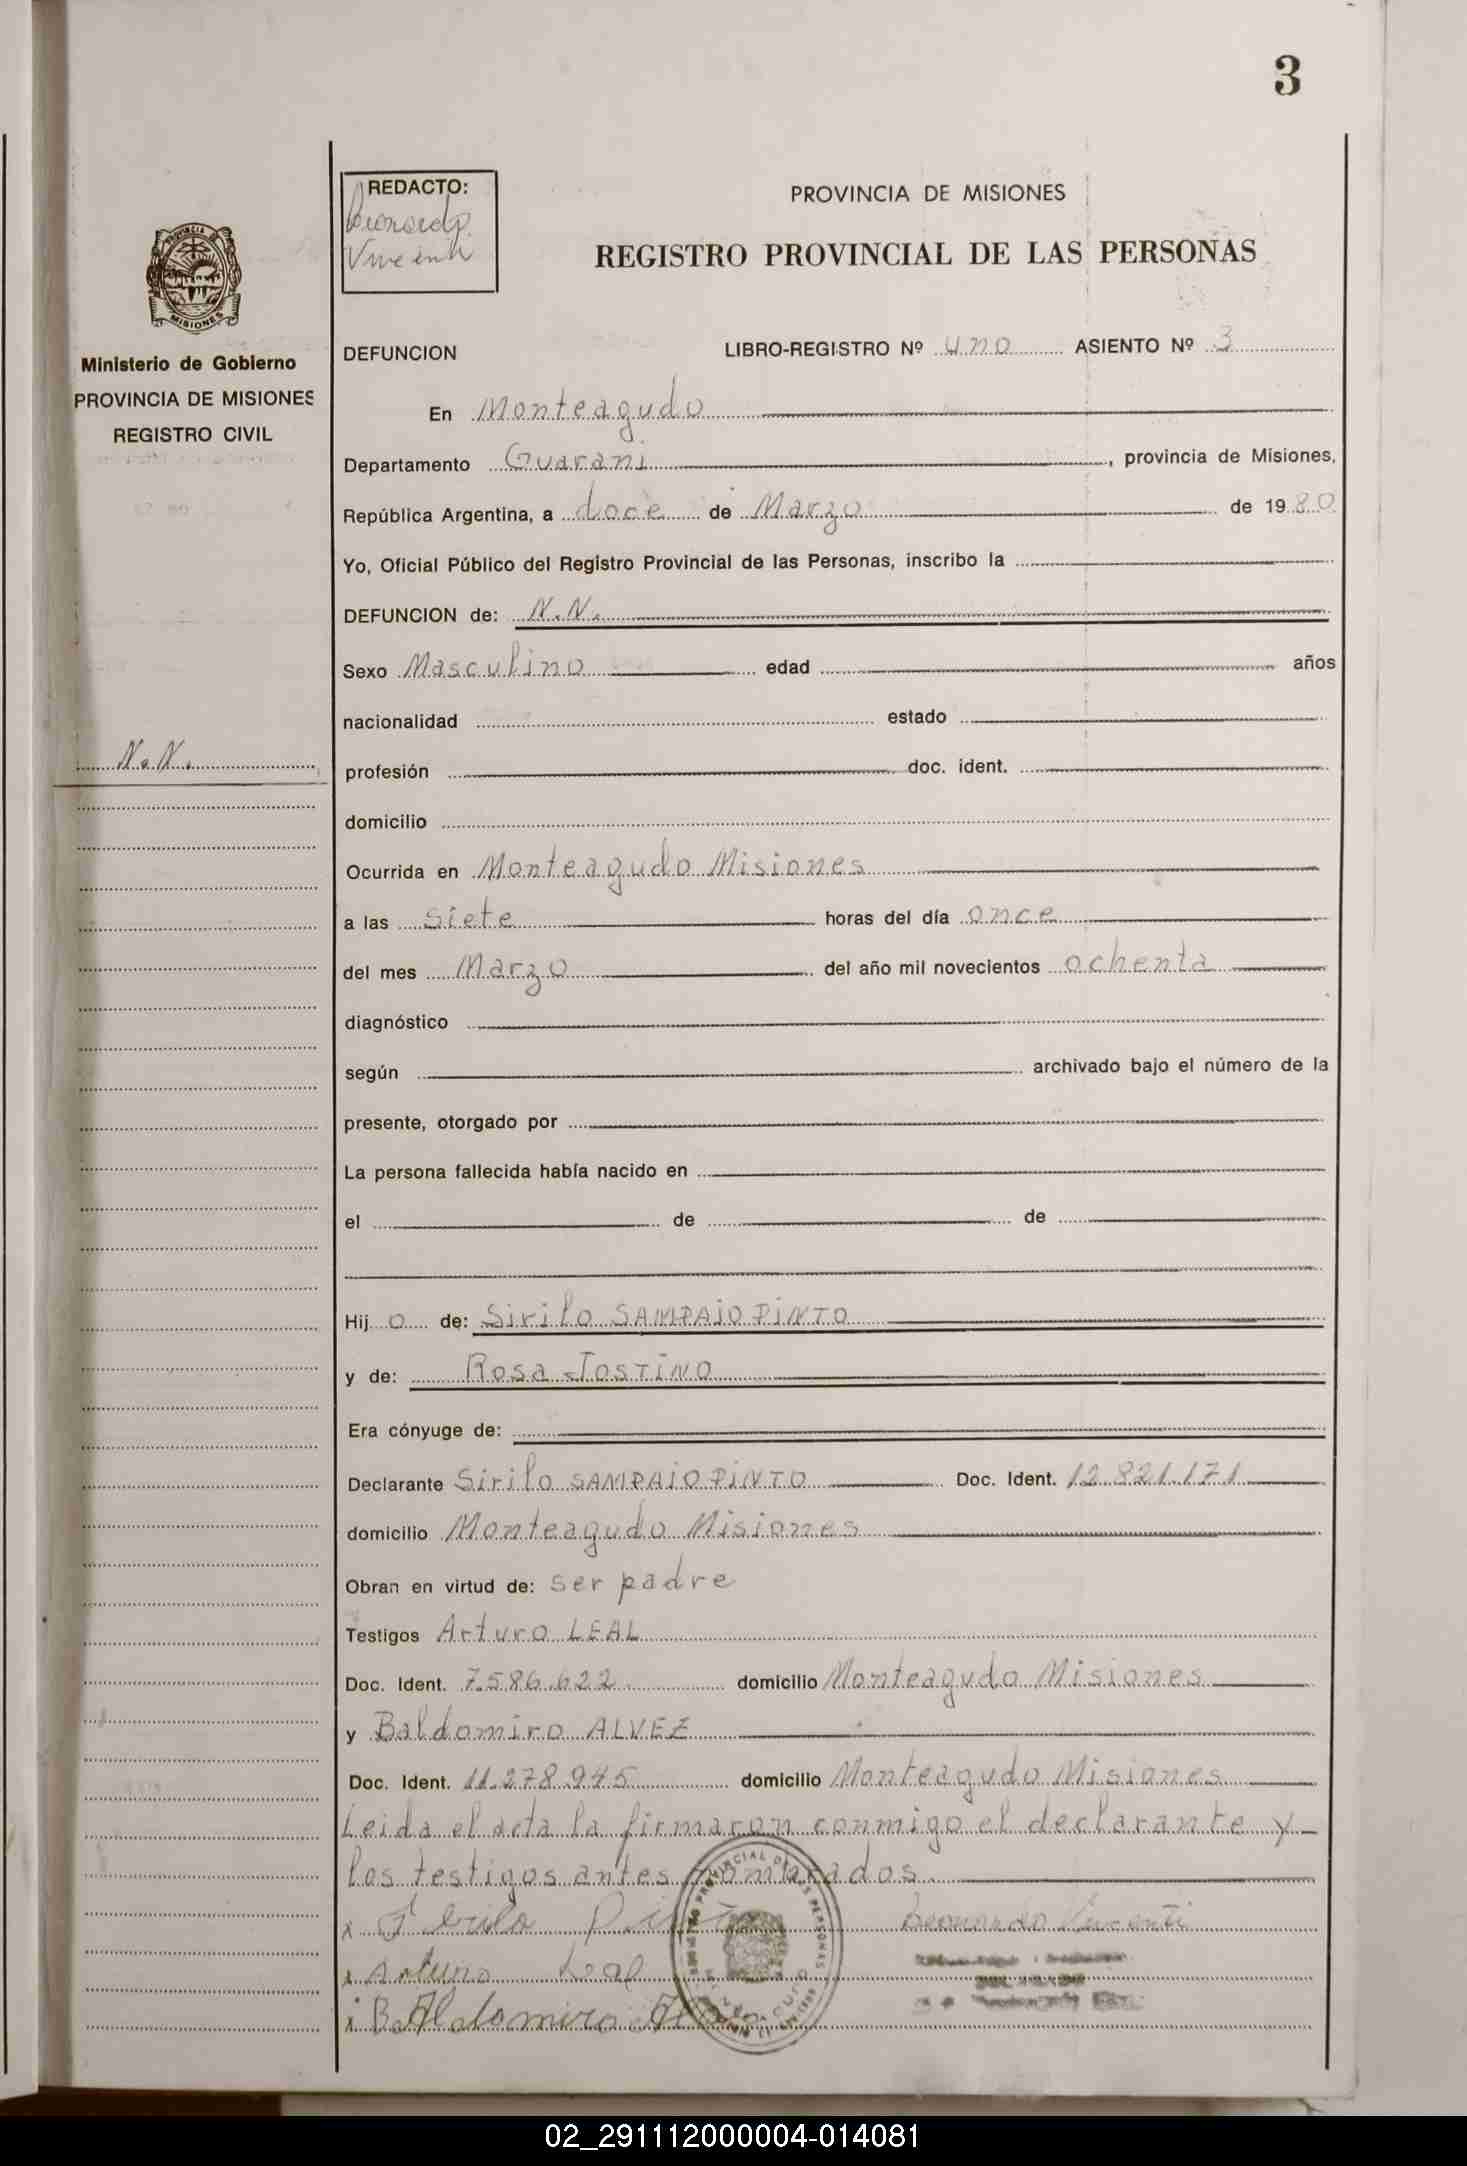 3
REDACTO:
PROVINCIA DE MISIONES
REGISTRO PROVINCIAL DE LAS PERSONAS
MISIONES
Ministerio de Gobierno
PROVINCIA DE MISIONES
REGISTRO CIVIL
N.N.
DEFUNCION LIBRO-REGISTRO Nº uno ASIENTO Nº 3
En Monteagudo
Departamento Guarani, provincia de Misiones,
República Argentina, a doce de Marzo de 1980
Yo, Oficial Público del Registro Provincial de las Personas, inscribo la
DEFUNCION de: N.N.
Sexo Masculino edad años
nacionalidad estado
profesión doc. ident.
domicilio
Ocurrida en Monteagudo Misiones
a las siete horas del día once
del mes Marzo del año mil novecientos ochenta
diagnóstico
según archivado bajo el número de la
presente, otorgado por
La persona fallecida había nacido en
el de de
Hijo de: Sirilo SAMPAiO PiNTO
y de: Rosa JOSTiNO
Era cónyuge de:
Declarante Sirilo SAMPAiO PiNTO Doc. Ident. 12.821.171
domicilio Monteagudo Misiones
Obran en virtud de: ser padre
Testigos Arturo LEAL
Doc. Ident. 7.586.622 domicilio Monteagudo Misiones
y Baldomiro ALVEZ
Doc. Ident. 11.278.945 domicilio Monteagudo Misiones
Leida el acta la firmaron conmigo el declarante y
los testigos antes nombrados.
x
x Arturo Leal
x
02_291112000004-014081